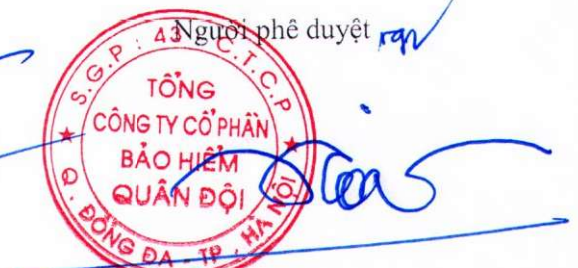 Người phê duyệt
S.G.P : 43 C.T.C.P
TỔNG
CÔNG TY CỔ PHẦN
BẢO HIỂM
QUÂN ĐỘI
Q. ĐỐNG ĐA - TP. HÀ NỘI